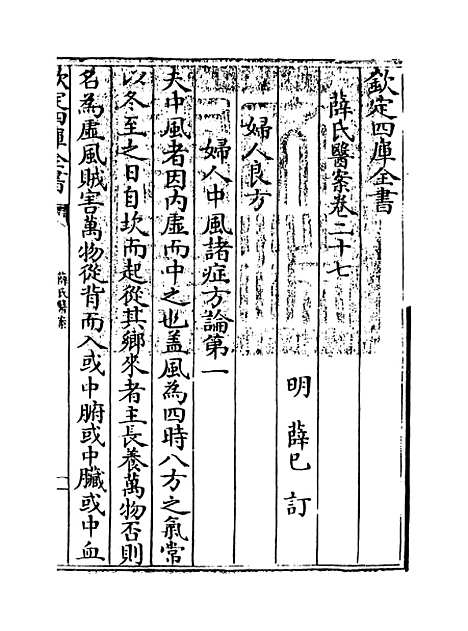 欽定四庫全書
薛氏醫案卷二十七
明 薛己 訂
婦人良方
婦人中風諸症方論第一
夫中風者因内虛而中之也盖風為四時八方之氣常
以冬至之日自坎而起從其鄉來者主長養萬物否則
名為虛風賊害萬物從背而入或中腑或中臟或中血
欽定四庫全書
薛氏醫案
一